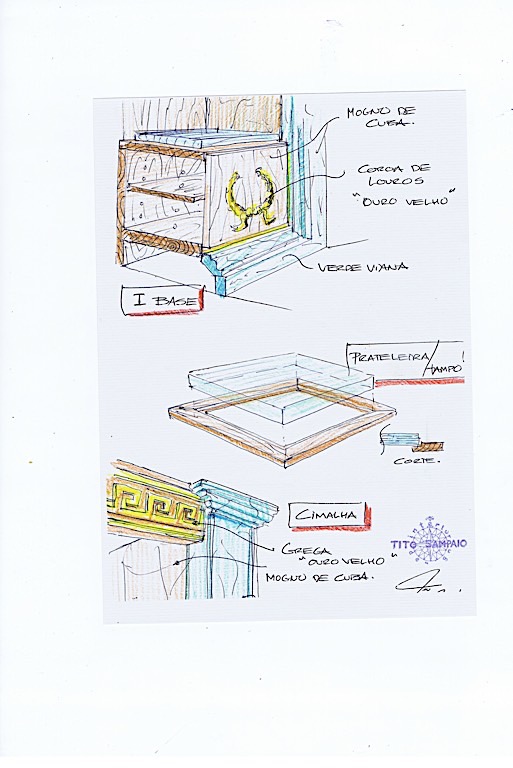 MOGNO DE
CUBA.
COROA DE
LOUROS
"OURO VELHO"
VERDE VIANA
I BASE
PRATELEIRA/
TAMPO!
CORTE.
CIMALHA
GREGA
"OURO VELHO"
MOGNO DE CUBA.
TITO SAMPAIO